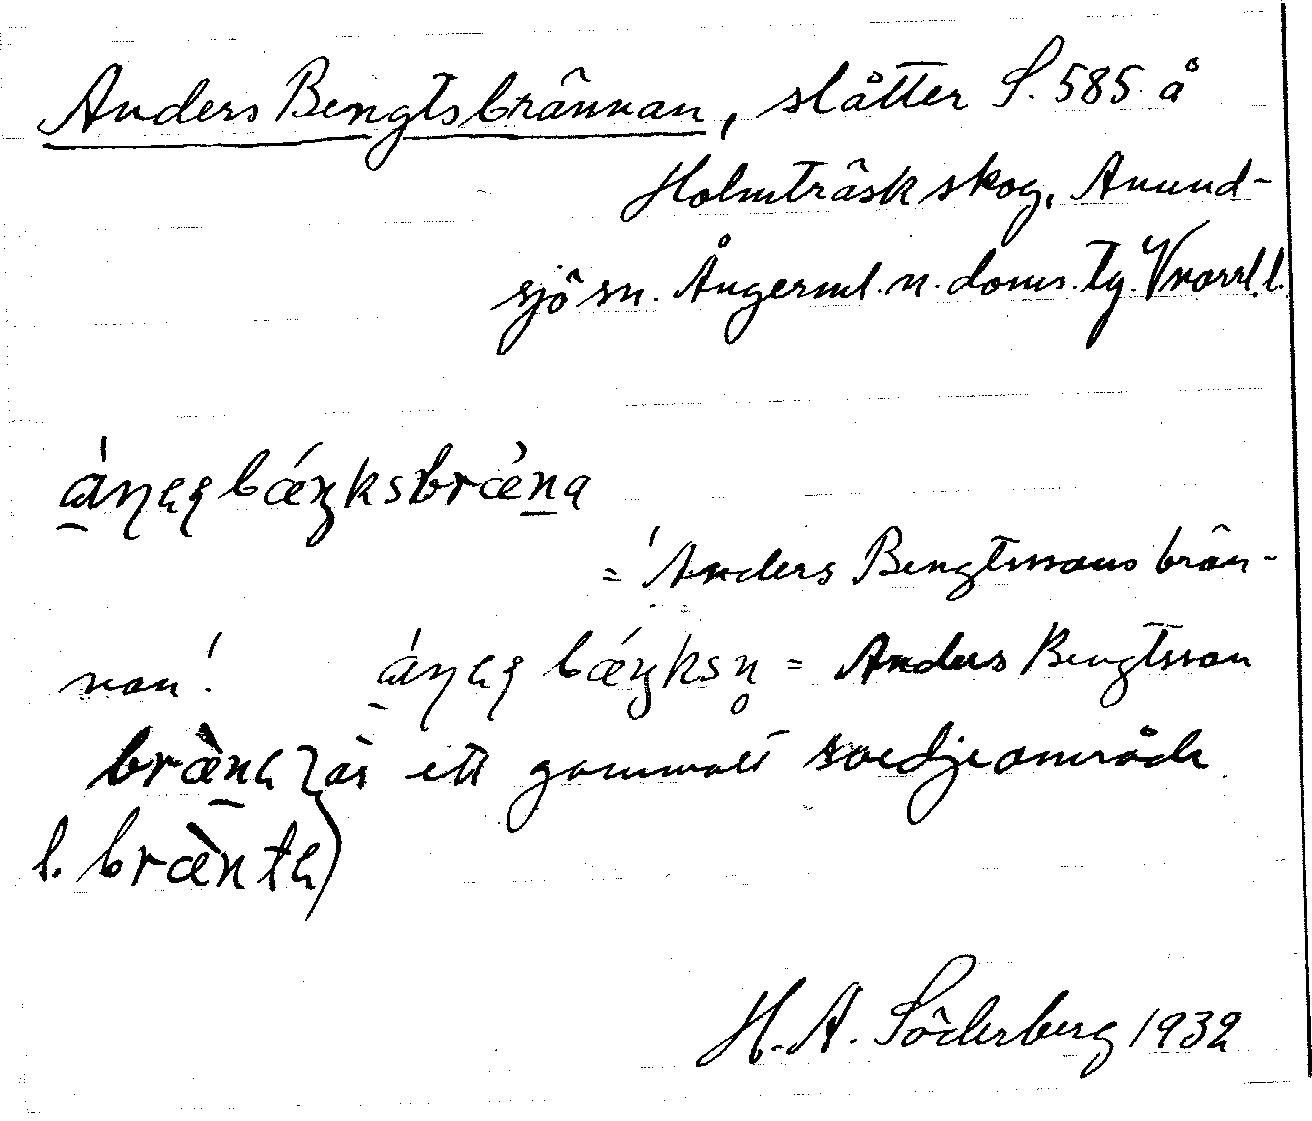 Anders Bengtsbrännan, slåtter S. 585 å
Holmträsk skog, Anund-
sjö sn. Ångerml. n. doms. tg. Vnorrl. l.
a̲̍́ŋɐʂ bǽŋksbræ̀n̲a
= 'Anders Bengtssons brän-
nan' áŋɐʂ bǽŋksn̥ = Anders Bengtsson
bræ̀n̲ɐ } är ett gammalt svedjeområde
l. bræ̀ntɐ)
H. A. Söderberg 1932